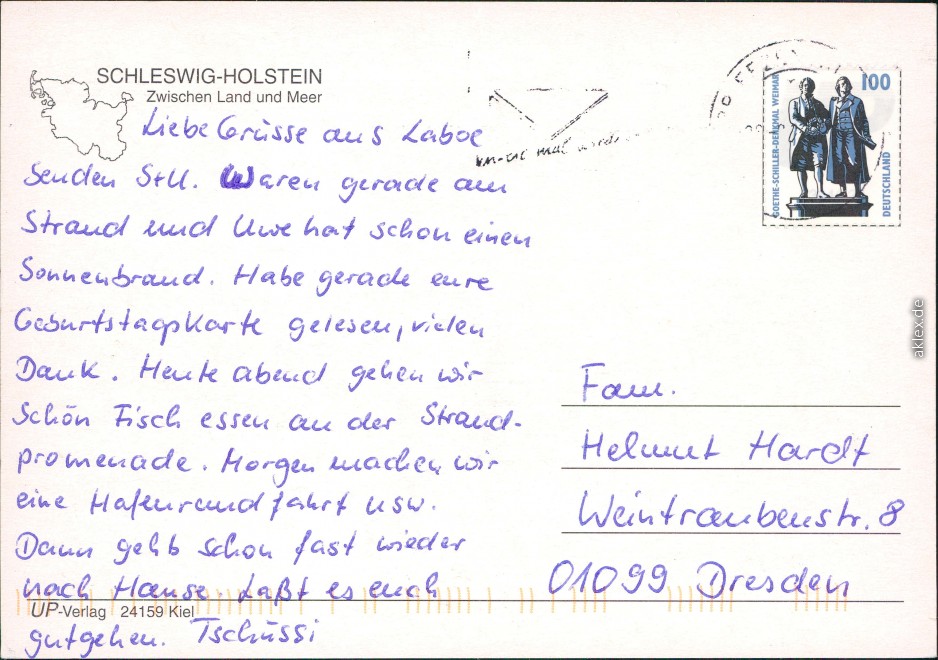 SCHLESWIG-HOLSTEIN
Zwischen Land und Meer
Liebe Grüsse aus Laboe
Senden S+U. Waren gerade am
Strand und Uwe hat schon einen
Sonnenbrand. Habe gerade eure
Geburtstagskarte gelesen, vielen
Dank. Heute abend gehen wir
Schön Fisch essen an der Strand-
promenade. Morgen machen wir
eine Hafenrundfahrt usw.
Dann gehts schon fast wieder
nach Hause. Laßt es euch
gutgehen. Tschüssi
UP-Verlag 24159 Kiel
100
GOETHE-SCHILLER-DENKMAL WEIMAR
DEUTSCHLAND
Fam.
Helmut Hardt
Weintraubenstr. 8
01099 Dresden
aklex.de